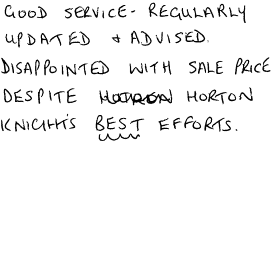 GOOD SERVICE - REGULARLY
UPDATED & ADVISED.
DISAPPOINTED WITH SALE PRICE
DESPITE HORTON
KNIGHTS BEST EFFORTS.